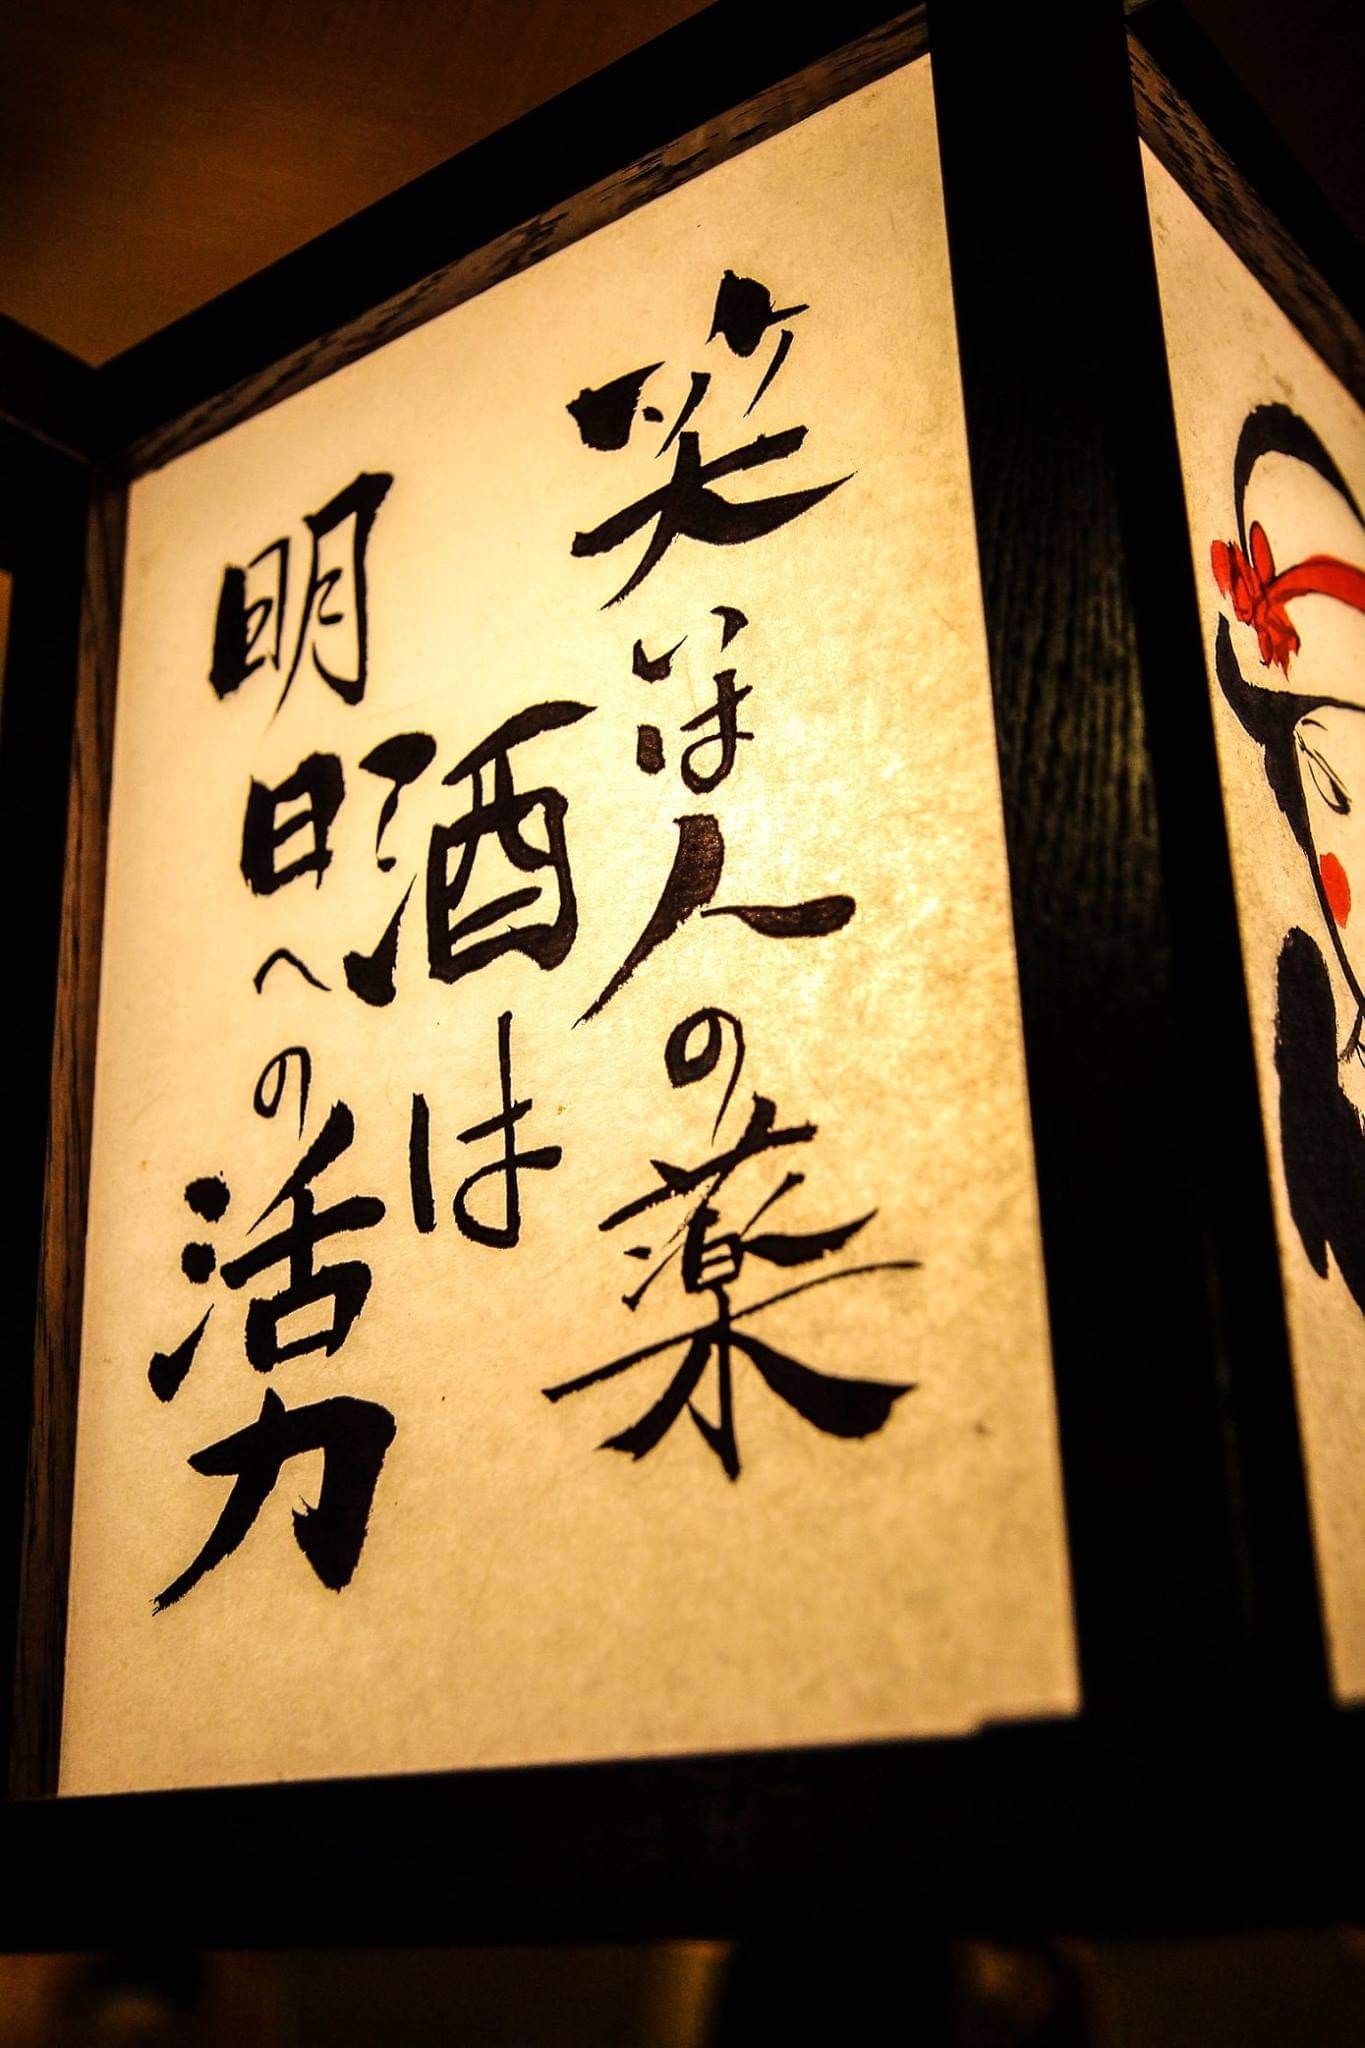 笑いは人の薬
酒は
明日への活力